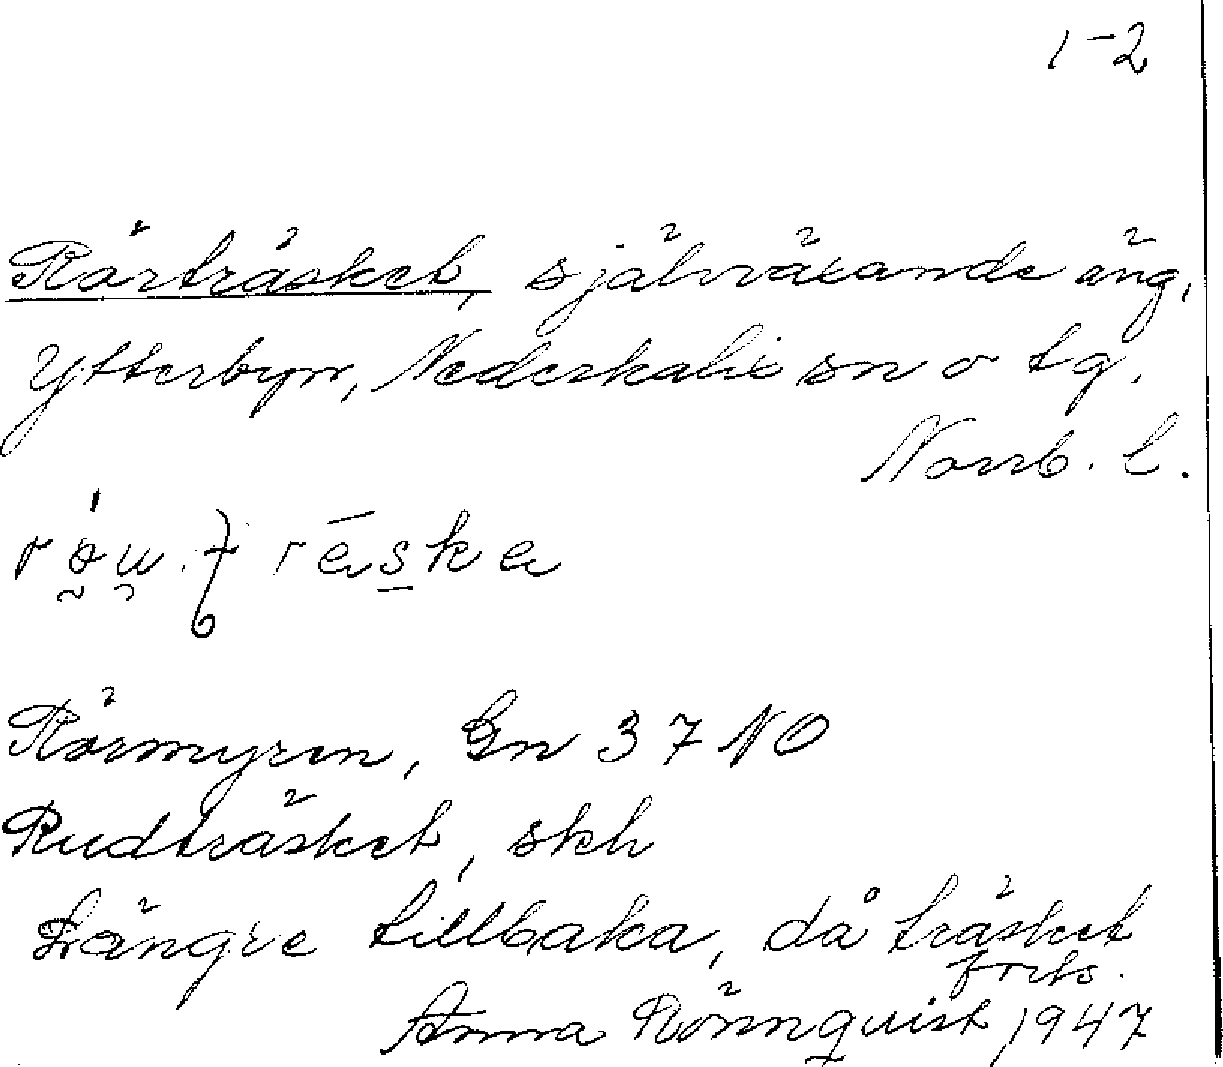 1-2
Rörträsket, självväxande äng,
Ytterbyn, Nederkalix sn o tg.
Norrb. l.
Rörmyren, Gn 37 NO
Rudträsket, skh
Längre tillbaka, då träsket
forts.
Anna Rönnquist 1947